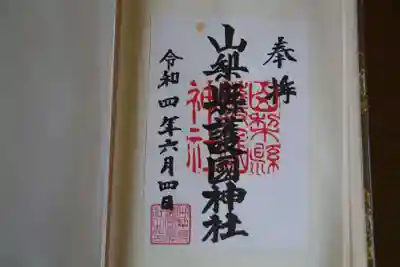 奉拝
山梨縣護國神社
山梨縣
護國
神社
令和四年六月四日